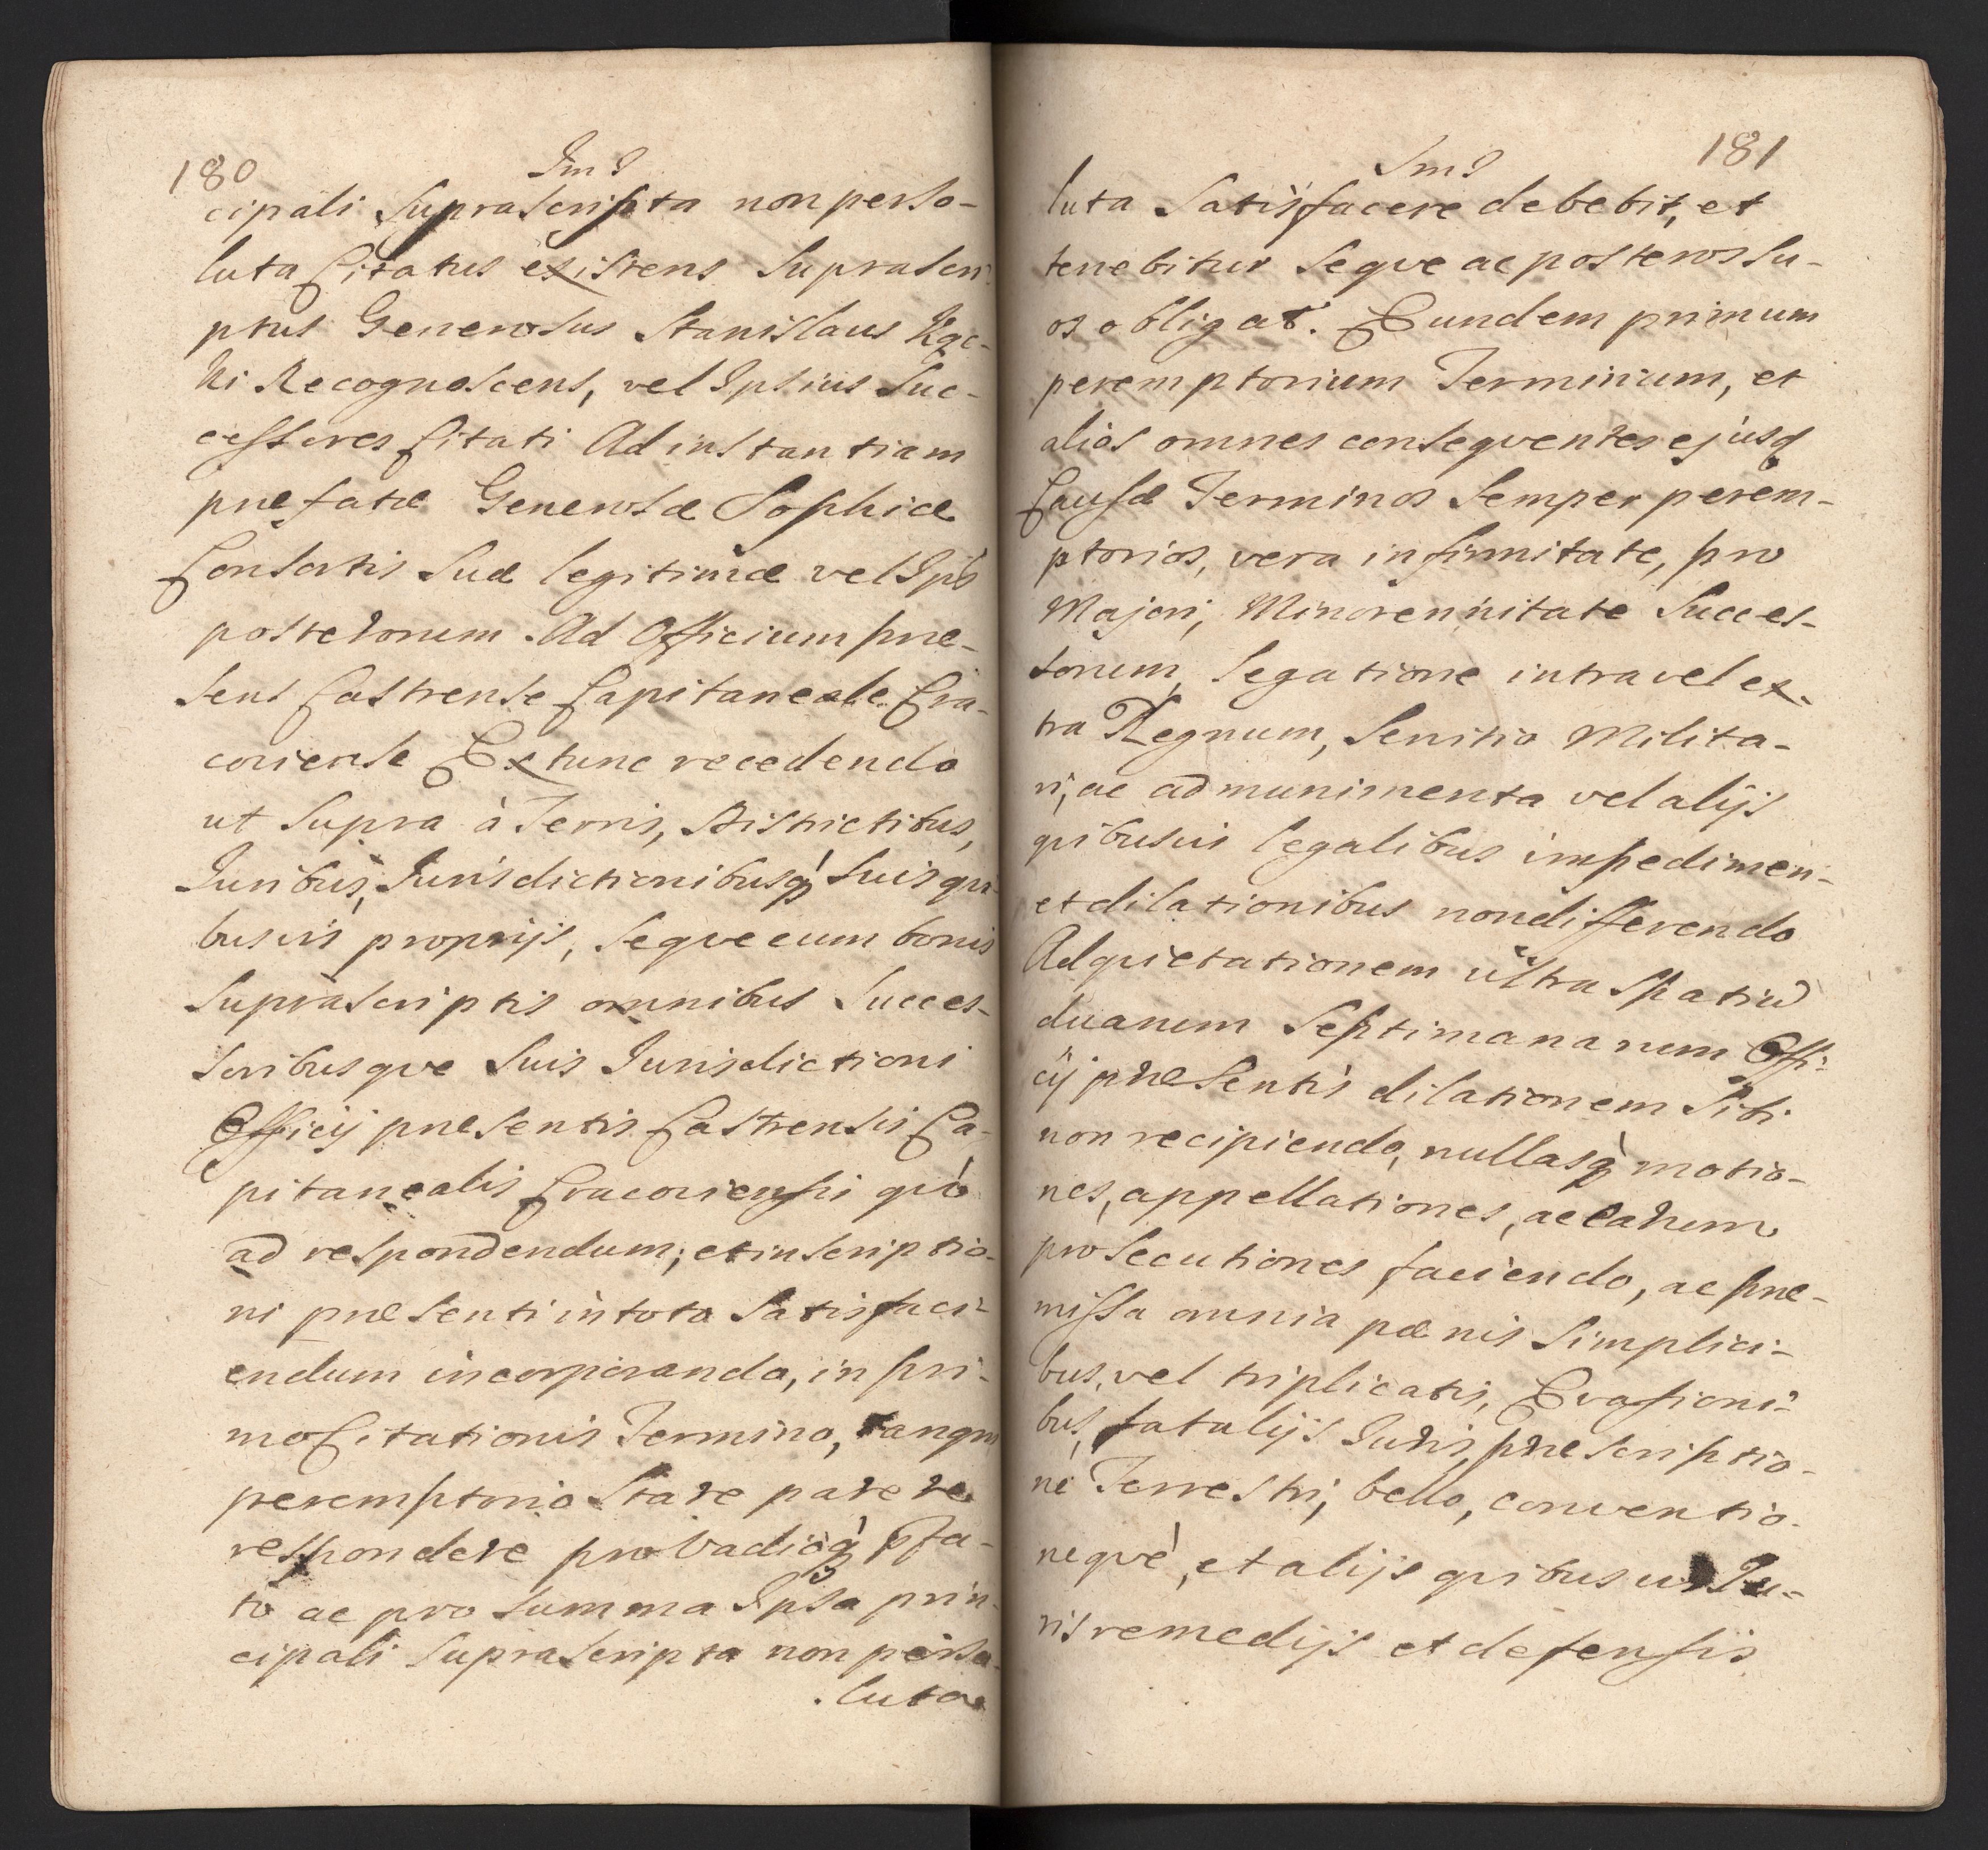 180
cipali Suprascripta non perso-
luta Citatus existens Suprascri-
ptus Generosus Stanislaus Kąc-
ki Recognoscens, vel Ipsius Suc-
cessores Citati Ad instantiam
præfatæ Generosæ Sophiæ
Consortis Suæ legitimæ vel Ips
posterorum. Ad Officium præ-
sens Castrense Capitaneale Cra-
coviense Extunc recedendo
ut Supra à Terris, Districtibus,
Juribus, Jurisdictionibusq Suis qui-
busvis proprijs, Seqve cum bonis
Suprascriptis omnibus Succes-
soribusqve Suis Jurisdictioni
Officij præsentis Castrensis Ca-
pitanealis Cracoviensi qvò
ad respondendum; et inscriptio-
ni præsenti in toto Satisfaci-
endum incorporando, in pri-
mo Citationis Termino, tanqm
peremptorio Stare parere
respondere pro Vadioq pfa-
to ac pro Summa Ipsa prin-
cipali Suprascripta non perso-
luta
181
luta Satisfacere debebit, et
tenebitur Seqve ac posteros Su-
os obligat. Eundem primum
peremptorium Terminum, et
alios omnes conseqventes ejusq
Causæ Terminos Semper perem-
ptorios, vera infirmitate, pro
Majori, Minorennitate Succes-
sorum, legatione intra vel ex-
tra Regnum, Servitio Milita-
ri, ac ad munimenta vel alijs
qvibusvis legalibus impedimen-
et dilationibus non differendo
Ad qvietationem ultra Spatiu
duarum Septimanarum Offi-
cij præsentis dilationem Sibi
non recipiendo, nullasq motio-
nes, appellationes, ac earum
prosecutiones faciendo, ac præ-
missa omnia pænis Simplici-
bus, vel triplicatis, Evasioni-
bus, fatalijs Juris, præscriptio-
ne Terrestri, bello, conventio-
neqvè, et alijs qvibusvis Ju-
ris remedijs et defensis